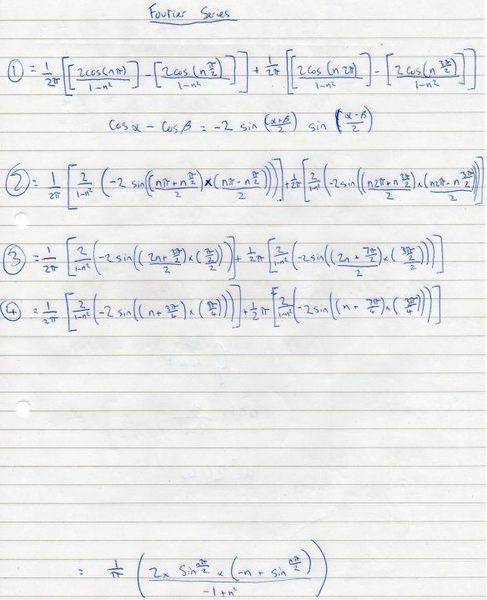 Fourier Series
① = 1/2π [[2cos(nπ)/1-n²] - [2cos(n π/2)/1-n²]] + 1/2π [[2cos(n2π)/1-n²] - [2cos(n 3π/2)/1-n²]]
cosα - cosβ = -2 sin (α+β/2) sin (α-β/2)
② = 1/2π [2/1-n² (-2 sin((nπ+n π/2)/2 × (nπ-n π/2)/2))] + 1/2π [2/1-n² (-2sin((n2π+n 3π/2)/2 × (n2π-n 3π/2)/2))]
③ = 1/2π [2/1-n² (-2sin((2n+ 3π/2)/2 × (π/2)/2))] + 1/2π [2/1-n² (-2sin((2n+ 7π/2)/2 × (3π/2)/2))]
= 1/π (2× sin nπ/2 × (-n + sin nπ/2)/-1+n²)